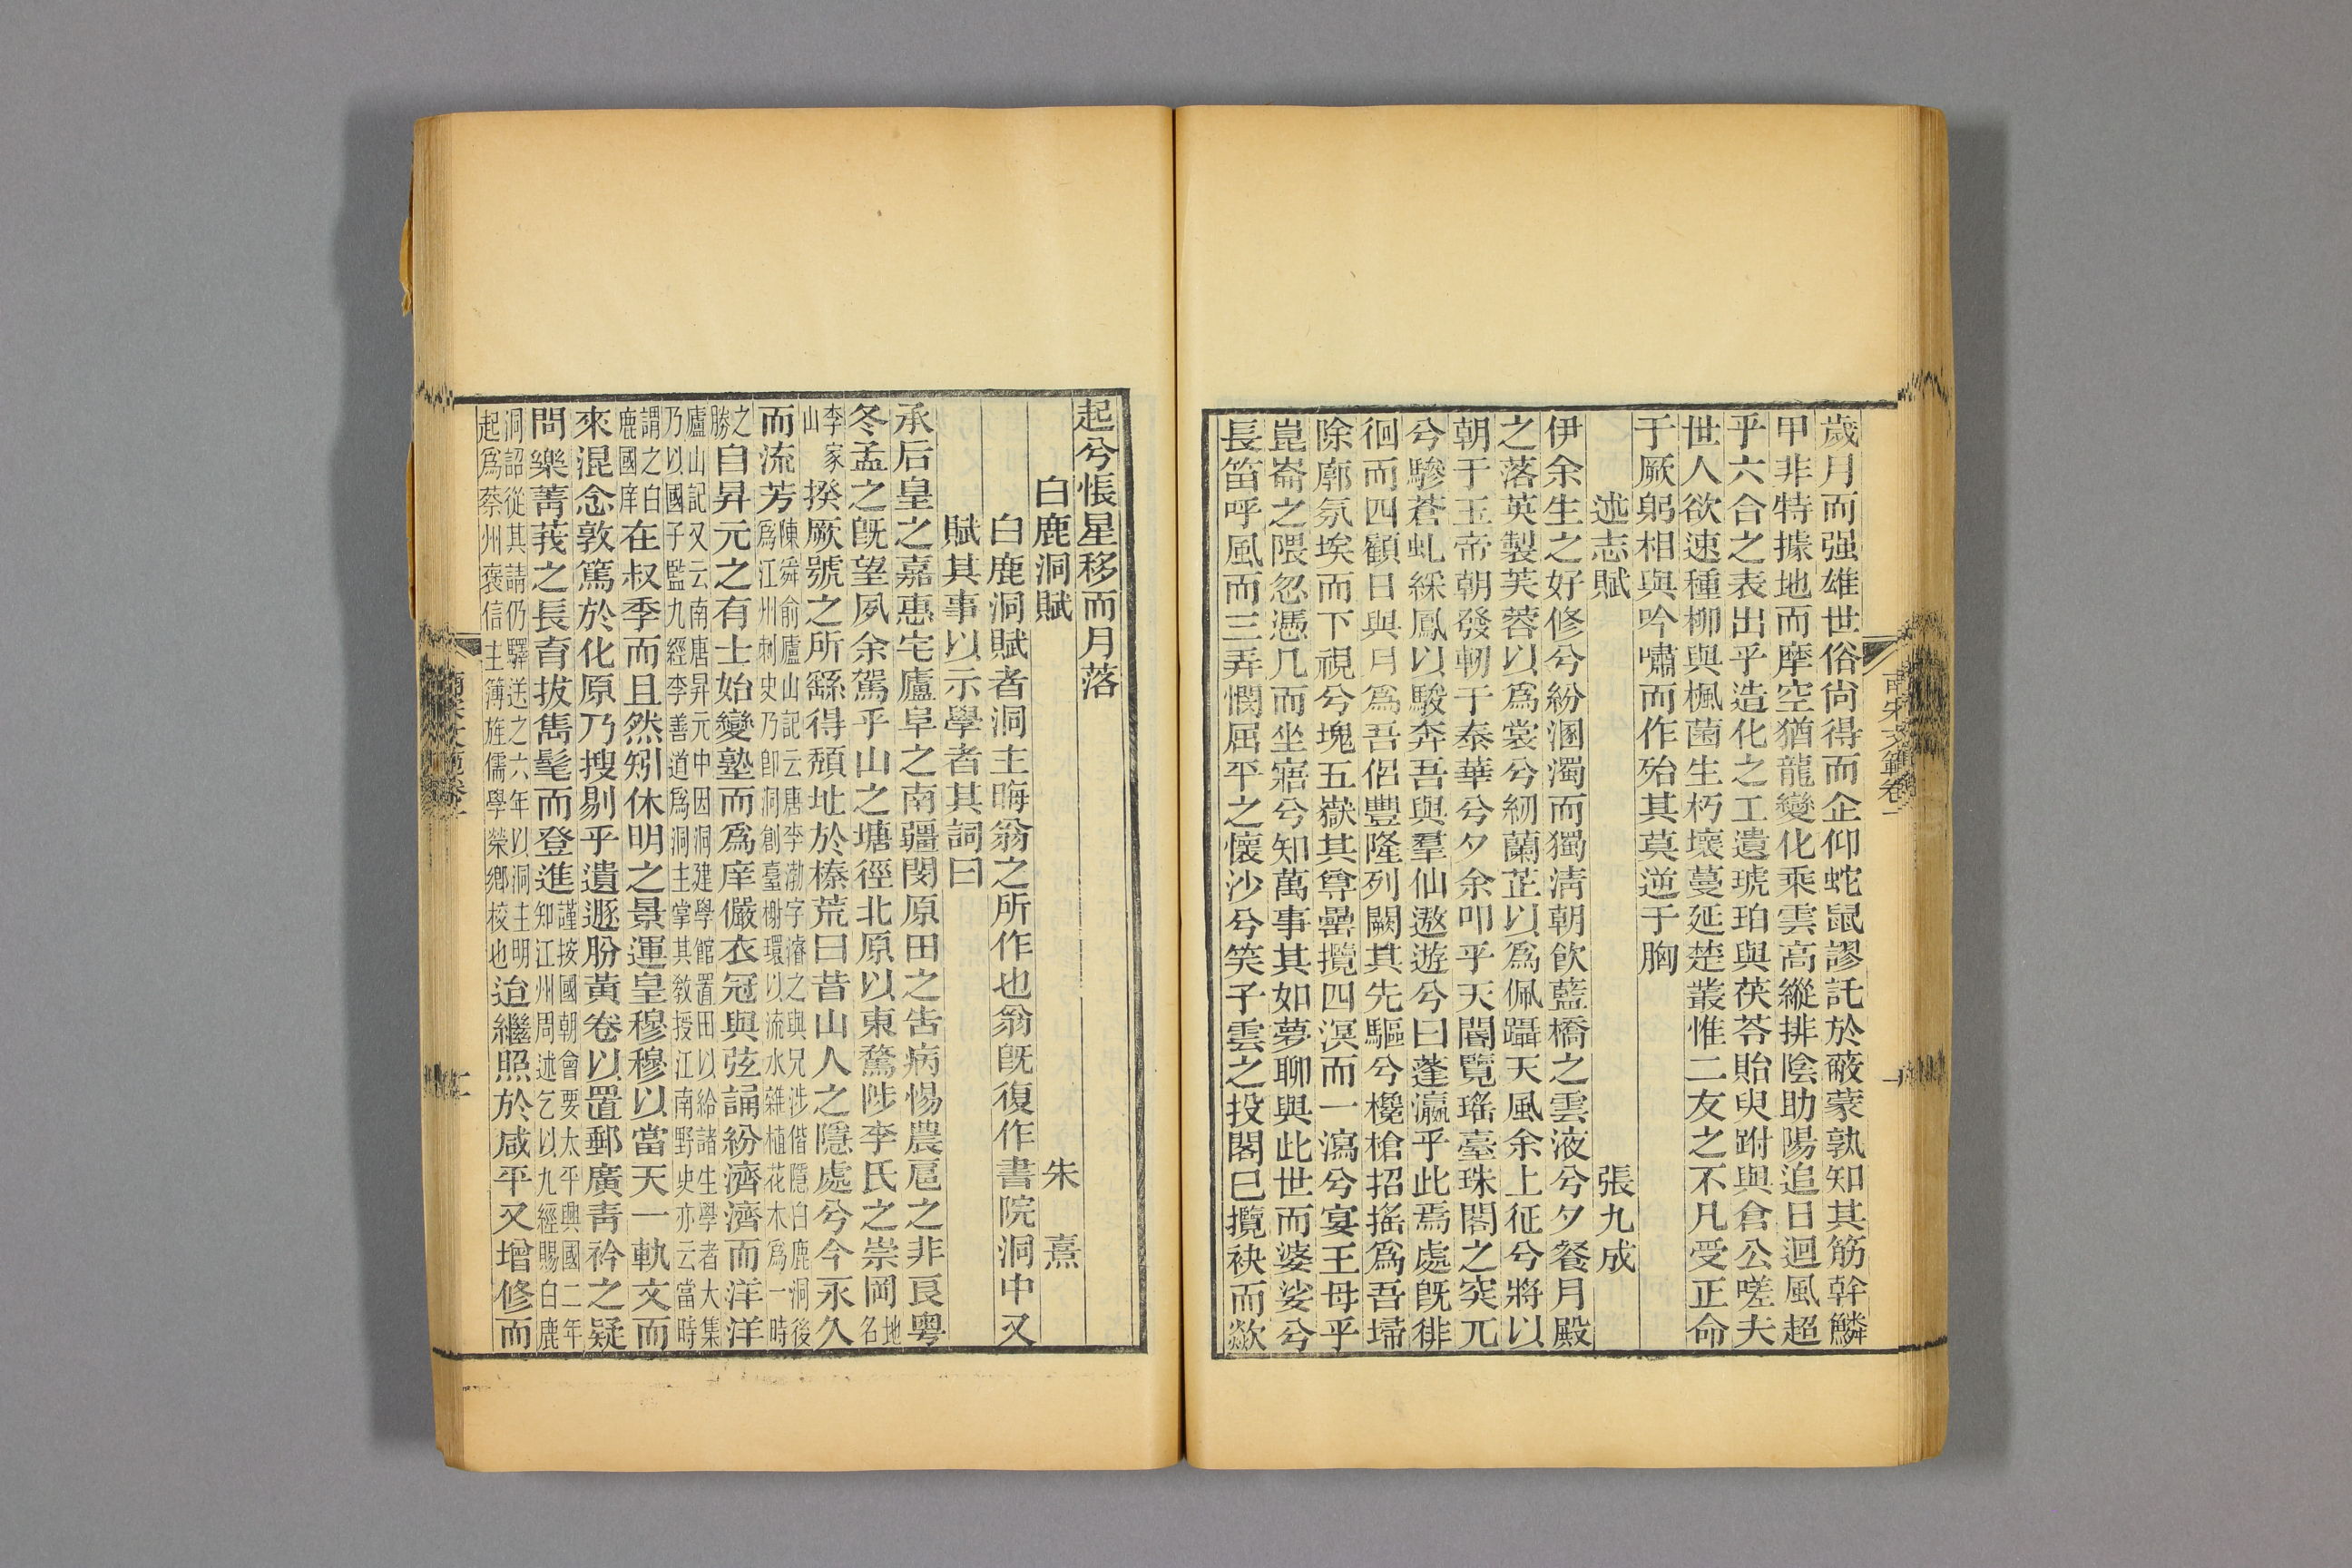 歲月而强雄世俗尙得而企仰蛇鼠謬託於蔽蒙孰知其筋幹鱗
甲非特據地而摩空猶龍變化乘雲高縱排陰助陽追日迴風超
乎六合之表出乎造化之工遺琥珀與茯苓貽臾跗與倉公嗟夫
世人欲速種柳與楓菌生朽壤蔓延楚叢惟二友之不凡受正命
于厥躬相與吟嘯而作殆其莫逆于胸
述志賦 張九成
伊余生之好修兮紛溷濁而獨清朝飮藍橋之雲液兮夕餐月殿
之落英製芙蓉以爲裳兮紉蘭芷以爲佩躡天風余上征兮將以
朝于玉帝朝發軔于泰華兮夕余叩乎天閽覽瑤臺珠閣之突兀
兮驂蒼虬綵鳳以駿奔吾與羣仙遨遊兮曰蓬瀛乎此焉處旣徘
徊而四顧日與月爲吾侶豐隆列闕其先驅兮欃槍招搖爲吾埽
除廓氛埃而下視兮塊五嶽其尊罍攬四溟而一瀉兮宴王母乎
崑崙之隈忽憑几而坐寤兮知萬事其如夢聊與此世而婆娑兮
長笛呼風而三弄憫屈平之懷沙兮笑子雲之投閣已攬袂而歘
南宋文範卷一
起兮悵星移而月落
白鹿洞賦 朱熹
白鹿洞賦者洞主晦翁之所作也翁旣復作書院洞中又
賦其事以示學者其詞曰
承后皇之嘉惠宅廬阜之南疆閔原田之告病惕農扈之非良粤
冬孟之旣望夙余駕乎山之塘徑北原以東騖陟李氏之崇岡地名
李家山揆厥號之所繇得頹址於榛荒曰昔山人之隱處兮今永久
而流芳陳舜俞廬山記云唐李渤字濬之與兄涉偕隱白鹿洞後爲江州刺史乃卽洞創臺榭環以流水雜植花木爲一時
之勝自昇元之有士始變塾而爲庠儼衣冠與弦誦紛濟濟而洋洋
廬山記又云南唐昇元中因洞建學館置田以給諸生學者大集乃以國子監九經李善道爲洞主掌其敎授江南野史亦云當時
謂之白鹿國庠在叔季而且然矧休明之景運皇穆穆以當天一軌文而
來混念敦篤於化原乃搜剔乎遺遯肦黃卷以置郵廣靑衿之疑
問樂菁莪之長育拔雋髦而登進謹按國朝會要太平興國二年知江州周述乞以九經賜白鹿
洞詔從其請仍驛送之六年以洞主明起爲蔡州褒信主簿旌儒學榮鄉校也迨繼照於咸平又增修而